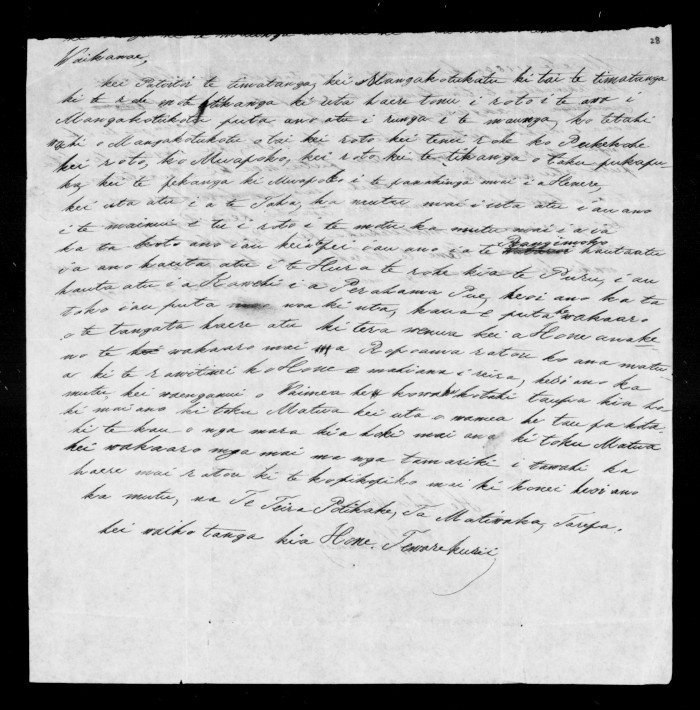 28
Waikanae,
kei te timatanga, kei Mangakotukutu ki tai te timatanga
ki te rode te tikanga ki uta haere tonu i roto i te awa i
Mangakotukutu puta ano atu i runga i te maunga, ko tetahi
wahi o Mangakotukutu o tai kei roto kei tenei rode ko Pukehohe
kei roto, ko Mwapoko, kei roto, kei te tikanga o taku pukapu-
ka, kei te pekanga ki Mwapoko i te panahinga mai i a Henere,
kei uta atu i a te Taha, ka mutu mai i uta atu i au ano
i te mainui e tu i roto i te motu ka mutu mai i a ia
ka ta ano i au ano i a te Rangimoho hautautu
i a ano hauta atu i te Hura te rode kia te Puru, i au
hauta atu i a Kawehi i a Perahama Pue, heoi ano ka ta
toko i au puta noa ki uta, kaua e puta te wakaaro
o te tangata haere atu ki tera wenua kei a Hone anake
no te wakaaro mai a Ropoama ratou ko ana matu-
a ki te rawitiwi ko Hone e i reira, heoi ano ka
mutu kei waenganui o Waimea kotahi taupa kia ho
ki mai ano ki toku Matua kei uta o wamea he tau pa
ki te kau o nga mara kia hoki mai ano ki toku Matua
hei wakaaro nga mai mo nga tamariki i tawahi ka
haere mai ratou ki te kopikopiko mai ki konei heoi ano
ka mutu, na Te Teira Ta Matiwaka, Tarepa,
hei waiho tanga kia Hone. Tewarekurii